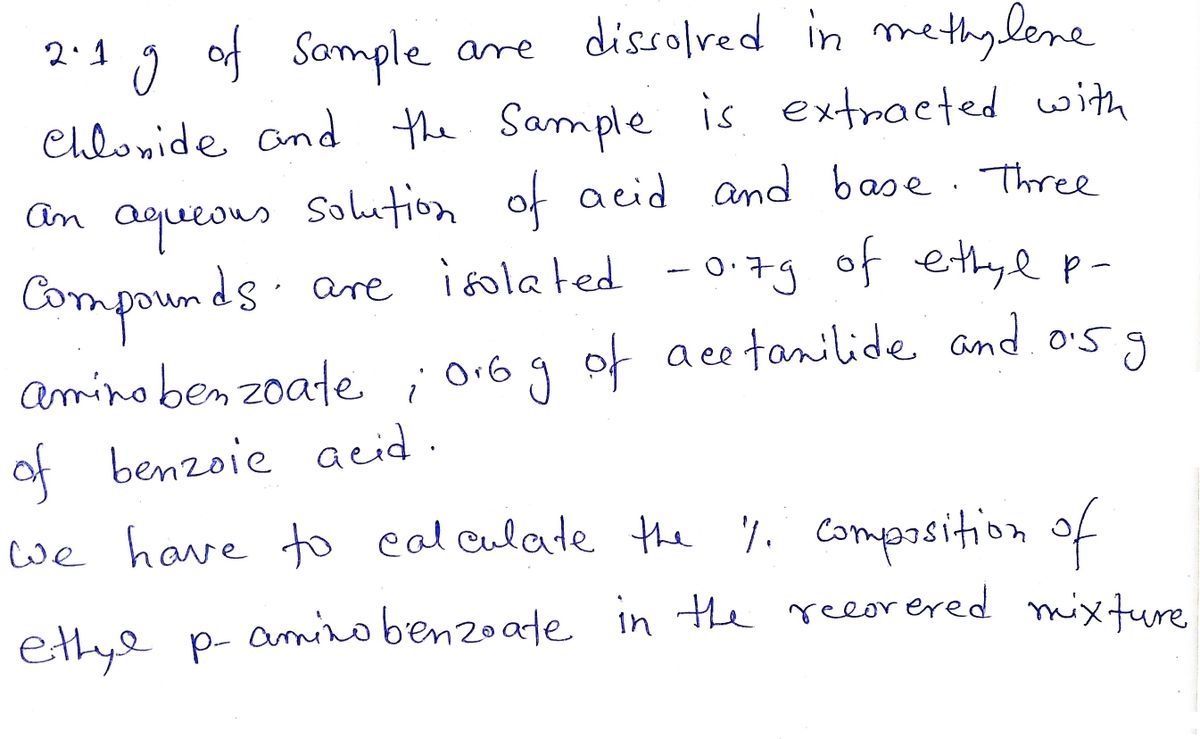 2.1 g of sample are dissolved in methylene
chloride and the sample is extracted with
an aqueous solution of acid and base. Three
compounds. are isolated - 0.7g of ethyl p-
aminobenzoate ; 0.6 g of acetanilide and 0.5 g
of benzoic acid.
we have to calculate the % composition of
ethyl p- aminobenzoate in the recovered mixture